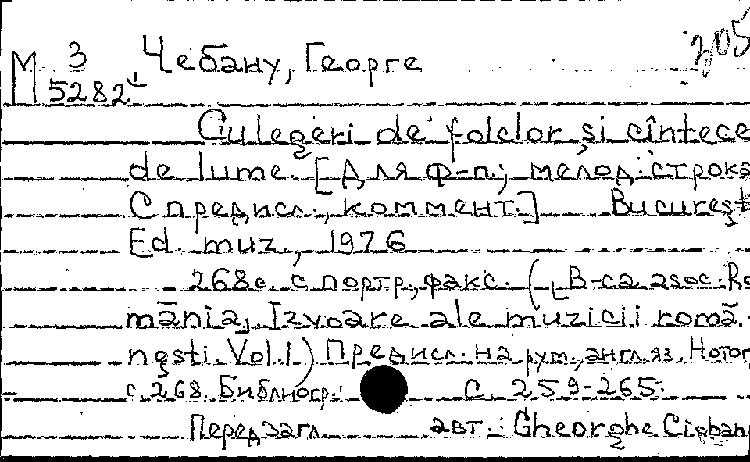 205
М 3 Чебану, Георге
5282
Culegeri de folclor și cîntece
de lume. [Для ф-п; мелод. строка
С предисл., коммент.] București
Ed. muz., 1976
268с. с портр., факс. ([В-са asoc. Ro
mânia, Izvoare ale muzicii româ-
nești. Vol. 1) Предисл. на рум., англ. яз. Нотог
с. 268. Библиогр.: с. 259-265.
Перед загл. авт.: Gheorghe Ciobanu